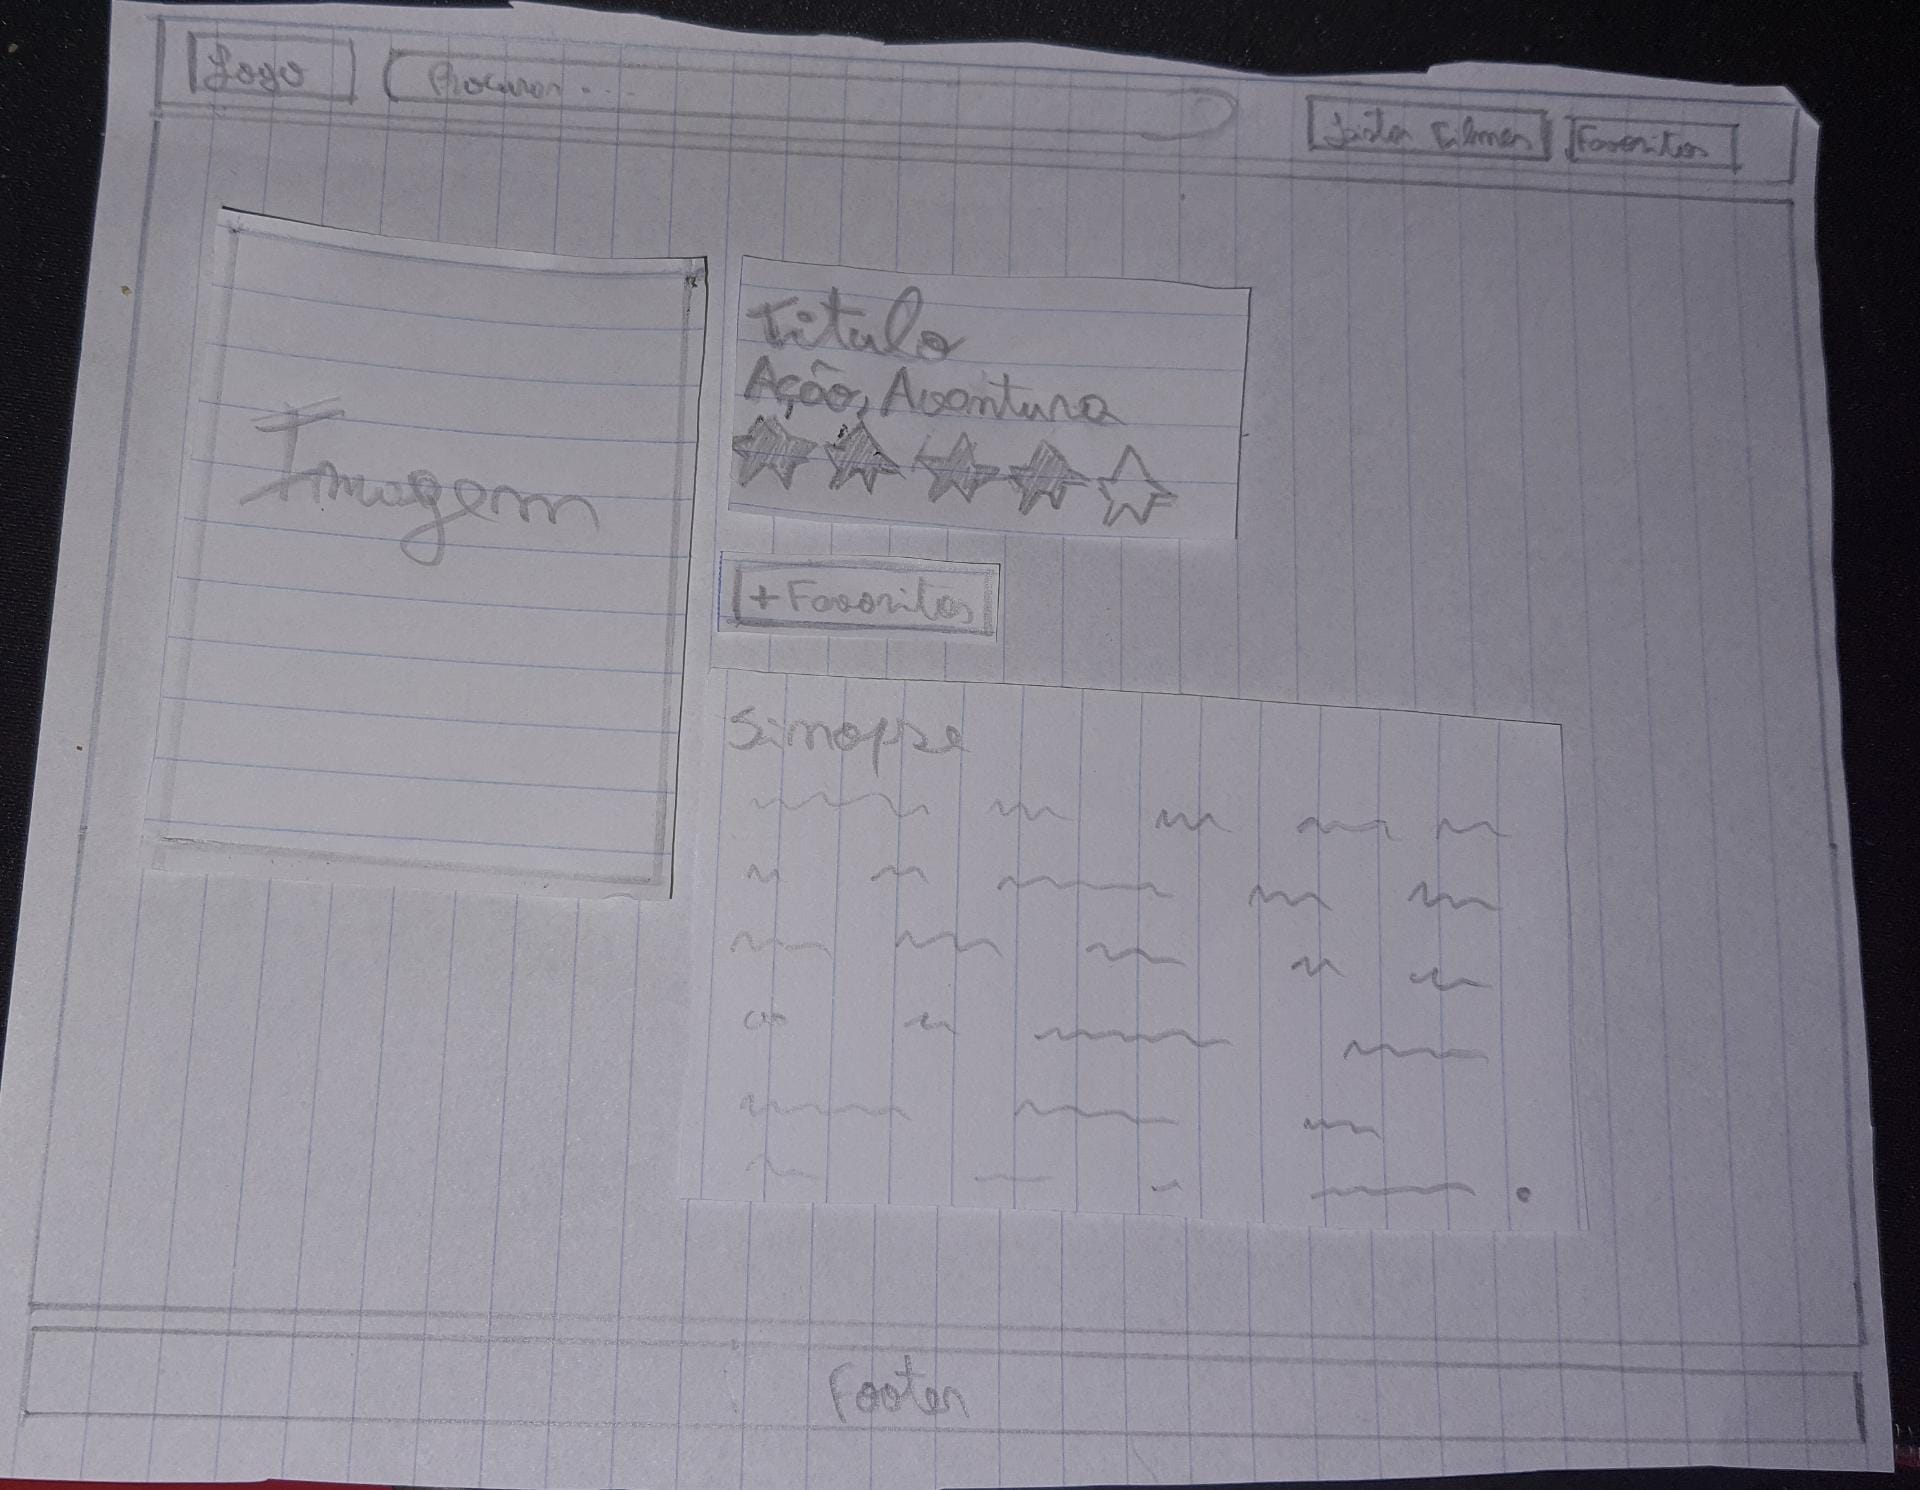 Logo
Procurar...
Lista Filmes
Favoritos
Imagem
Titulo
Ação, Aventura
+ Favoritos
Sinopse
Footer